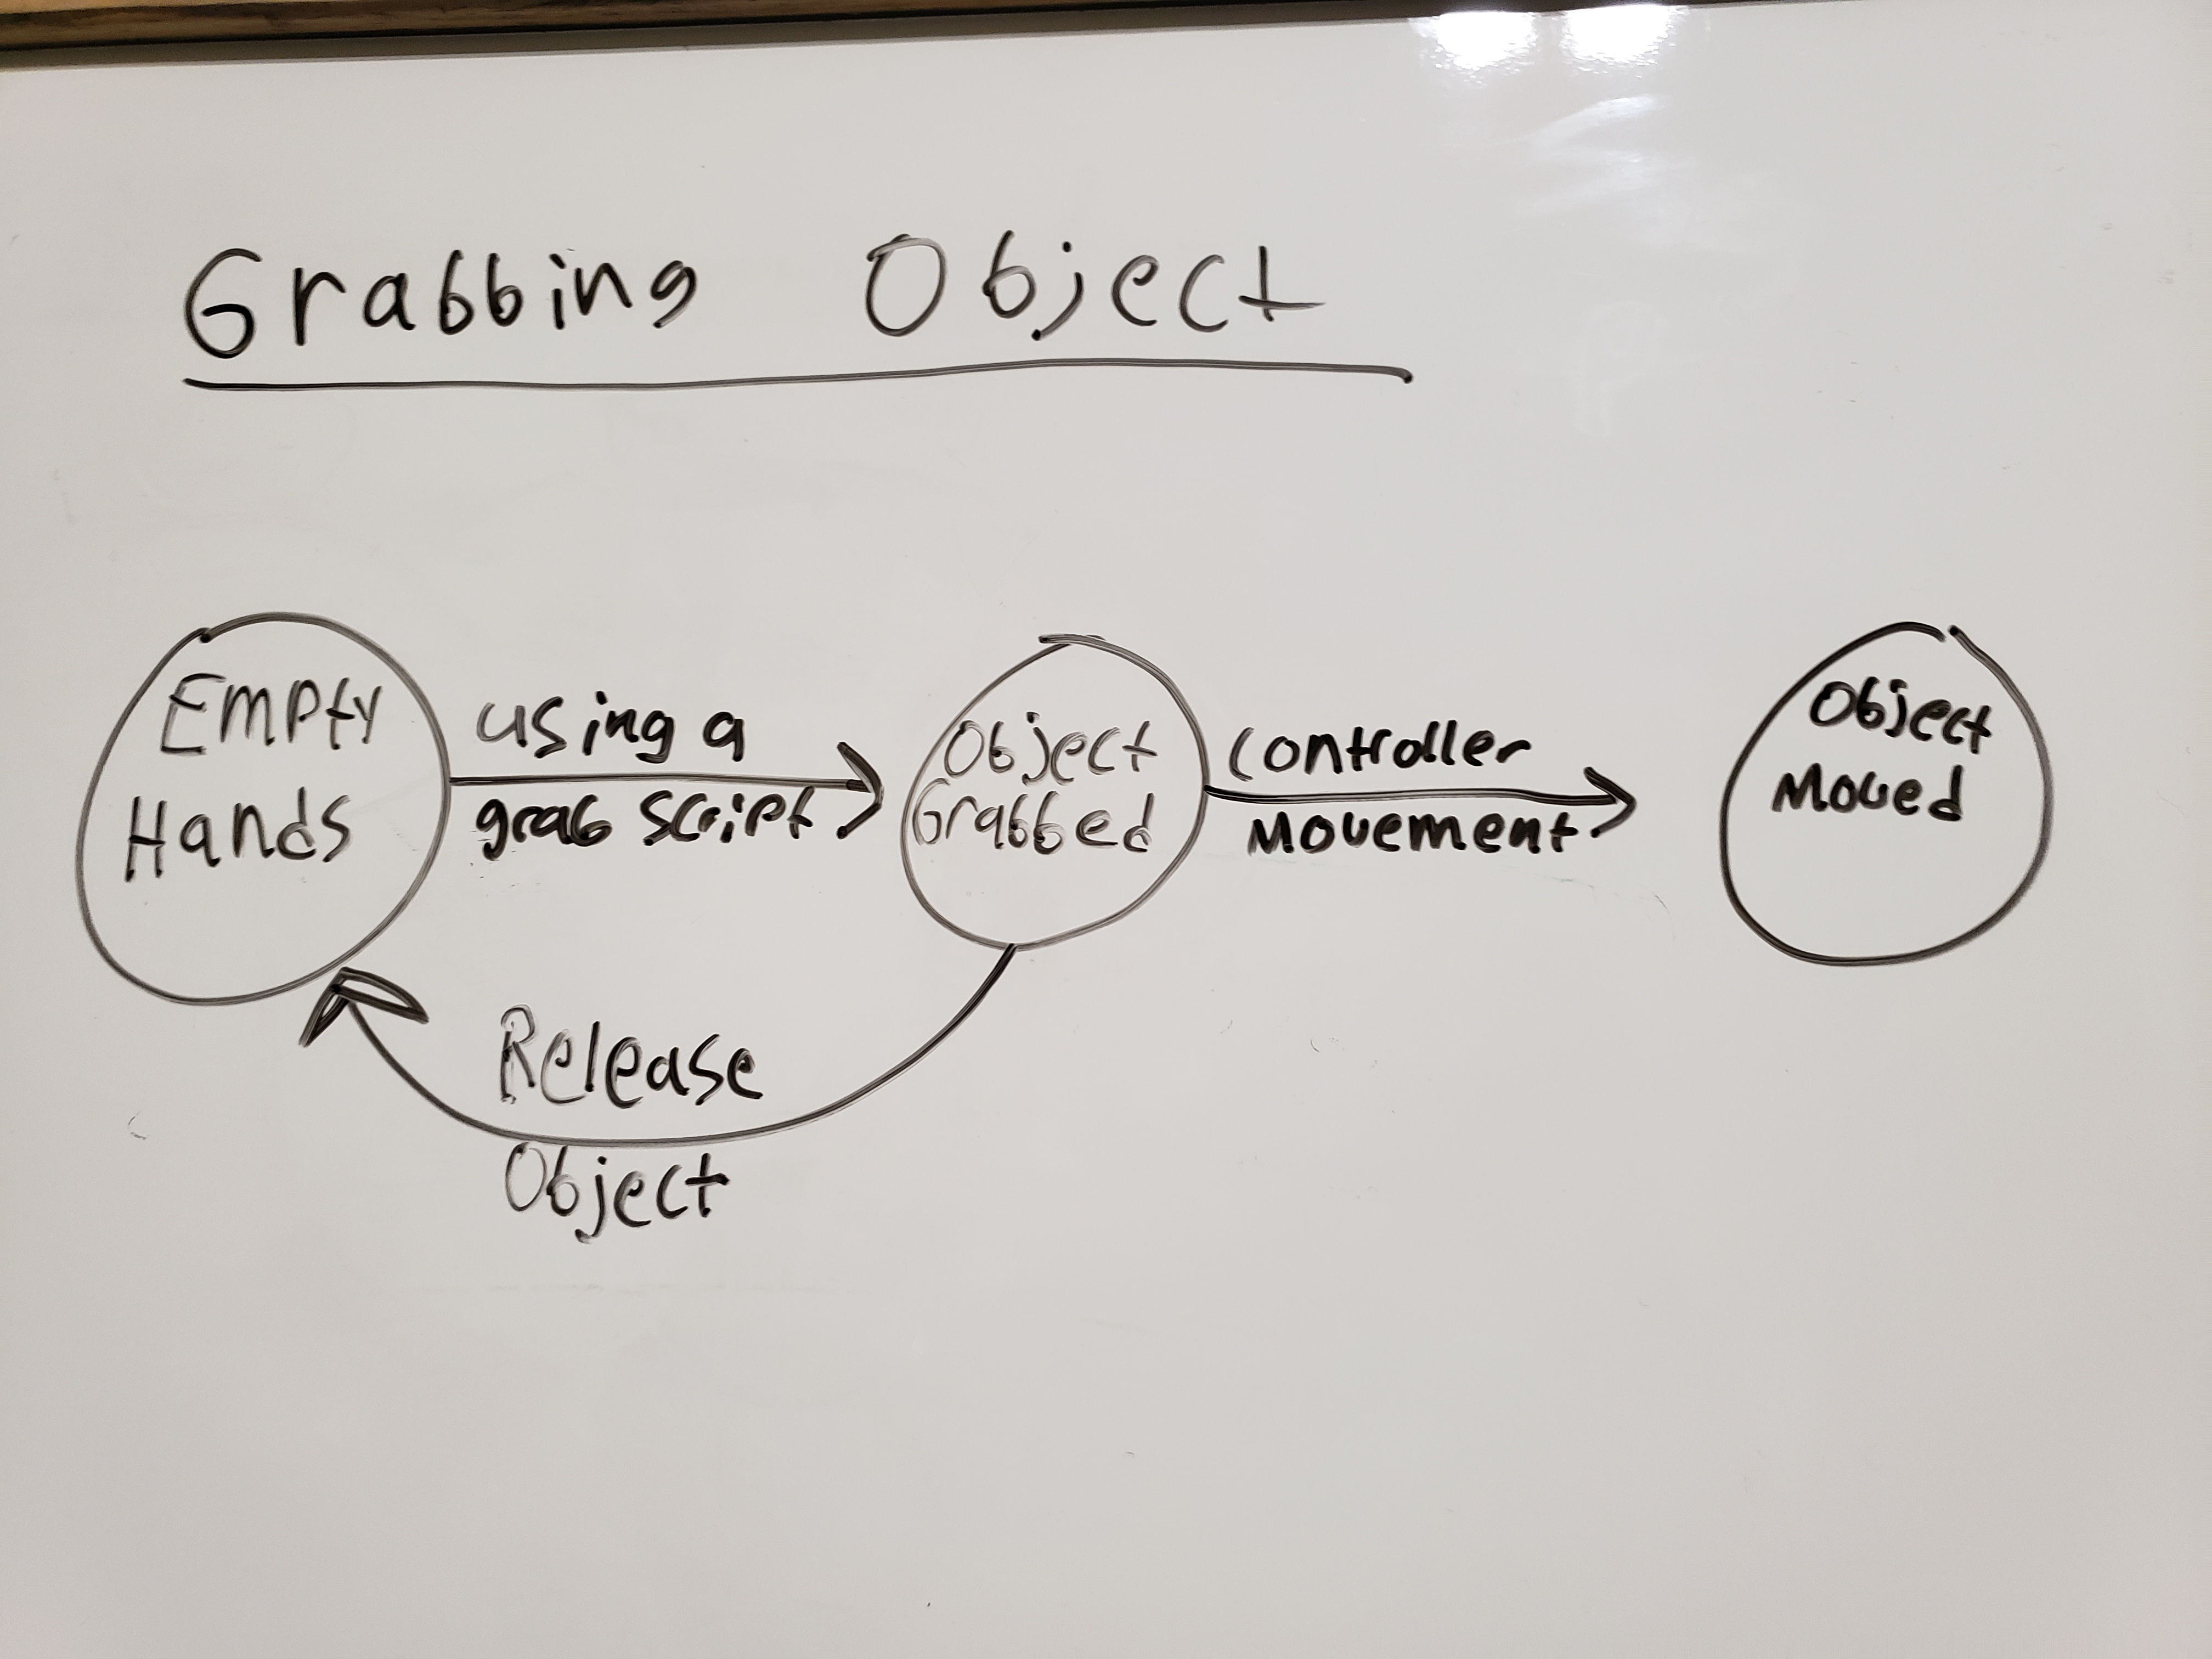 Grabbing Object
Empty
Hands
using a
grab script
Object
Grabbed
controller
Movement
Object
Moved
Release
Object